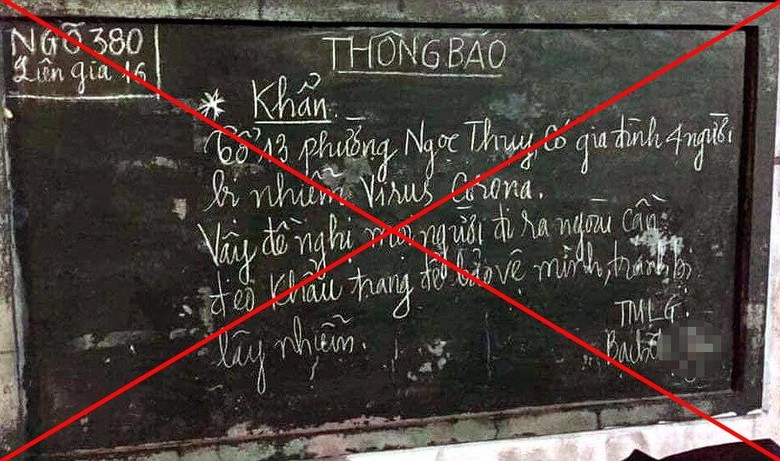 NGÕ 380
Liên gia 16
THÔNG BÁO
* Khẩn.
Tổ 13 phường Ngọc Thụy, có gia đình 4 người
bị nhiễm Virus Corona.
Vậy đề nghị mọi người đi ra ngoài cần
đeo khẩu trang để bảo vệ mình, tránh bị
lây nhiễm.
TMLG:
Bạch